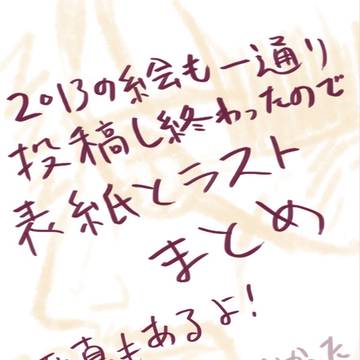 2013の絵も一通り
投稿し終わったので
表紙とラスト
まとめ
真もあるよ!